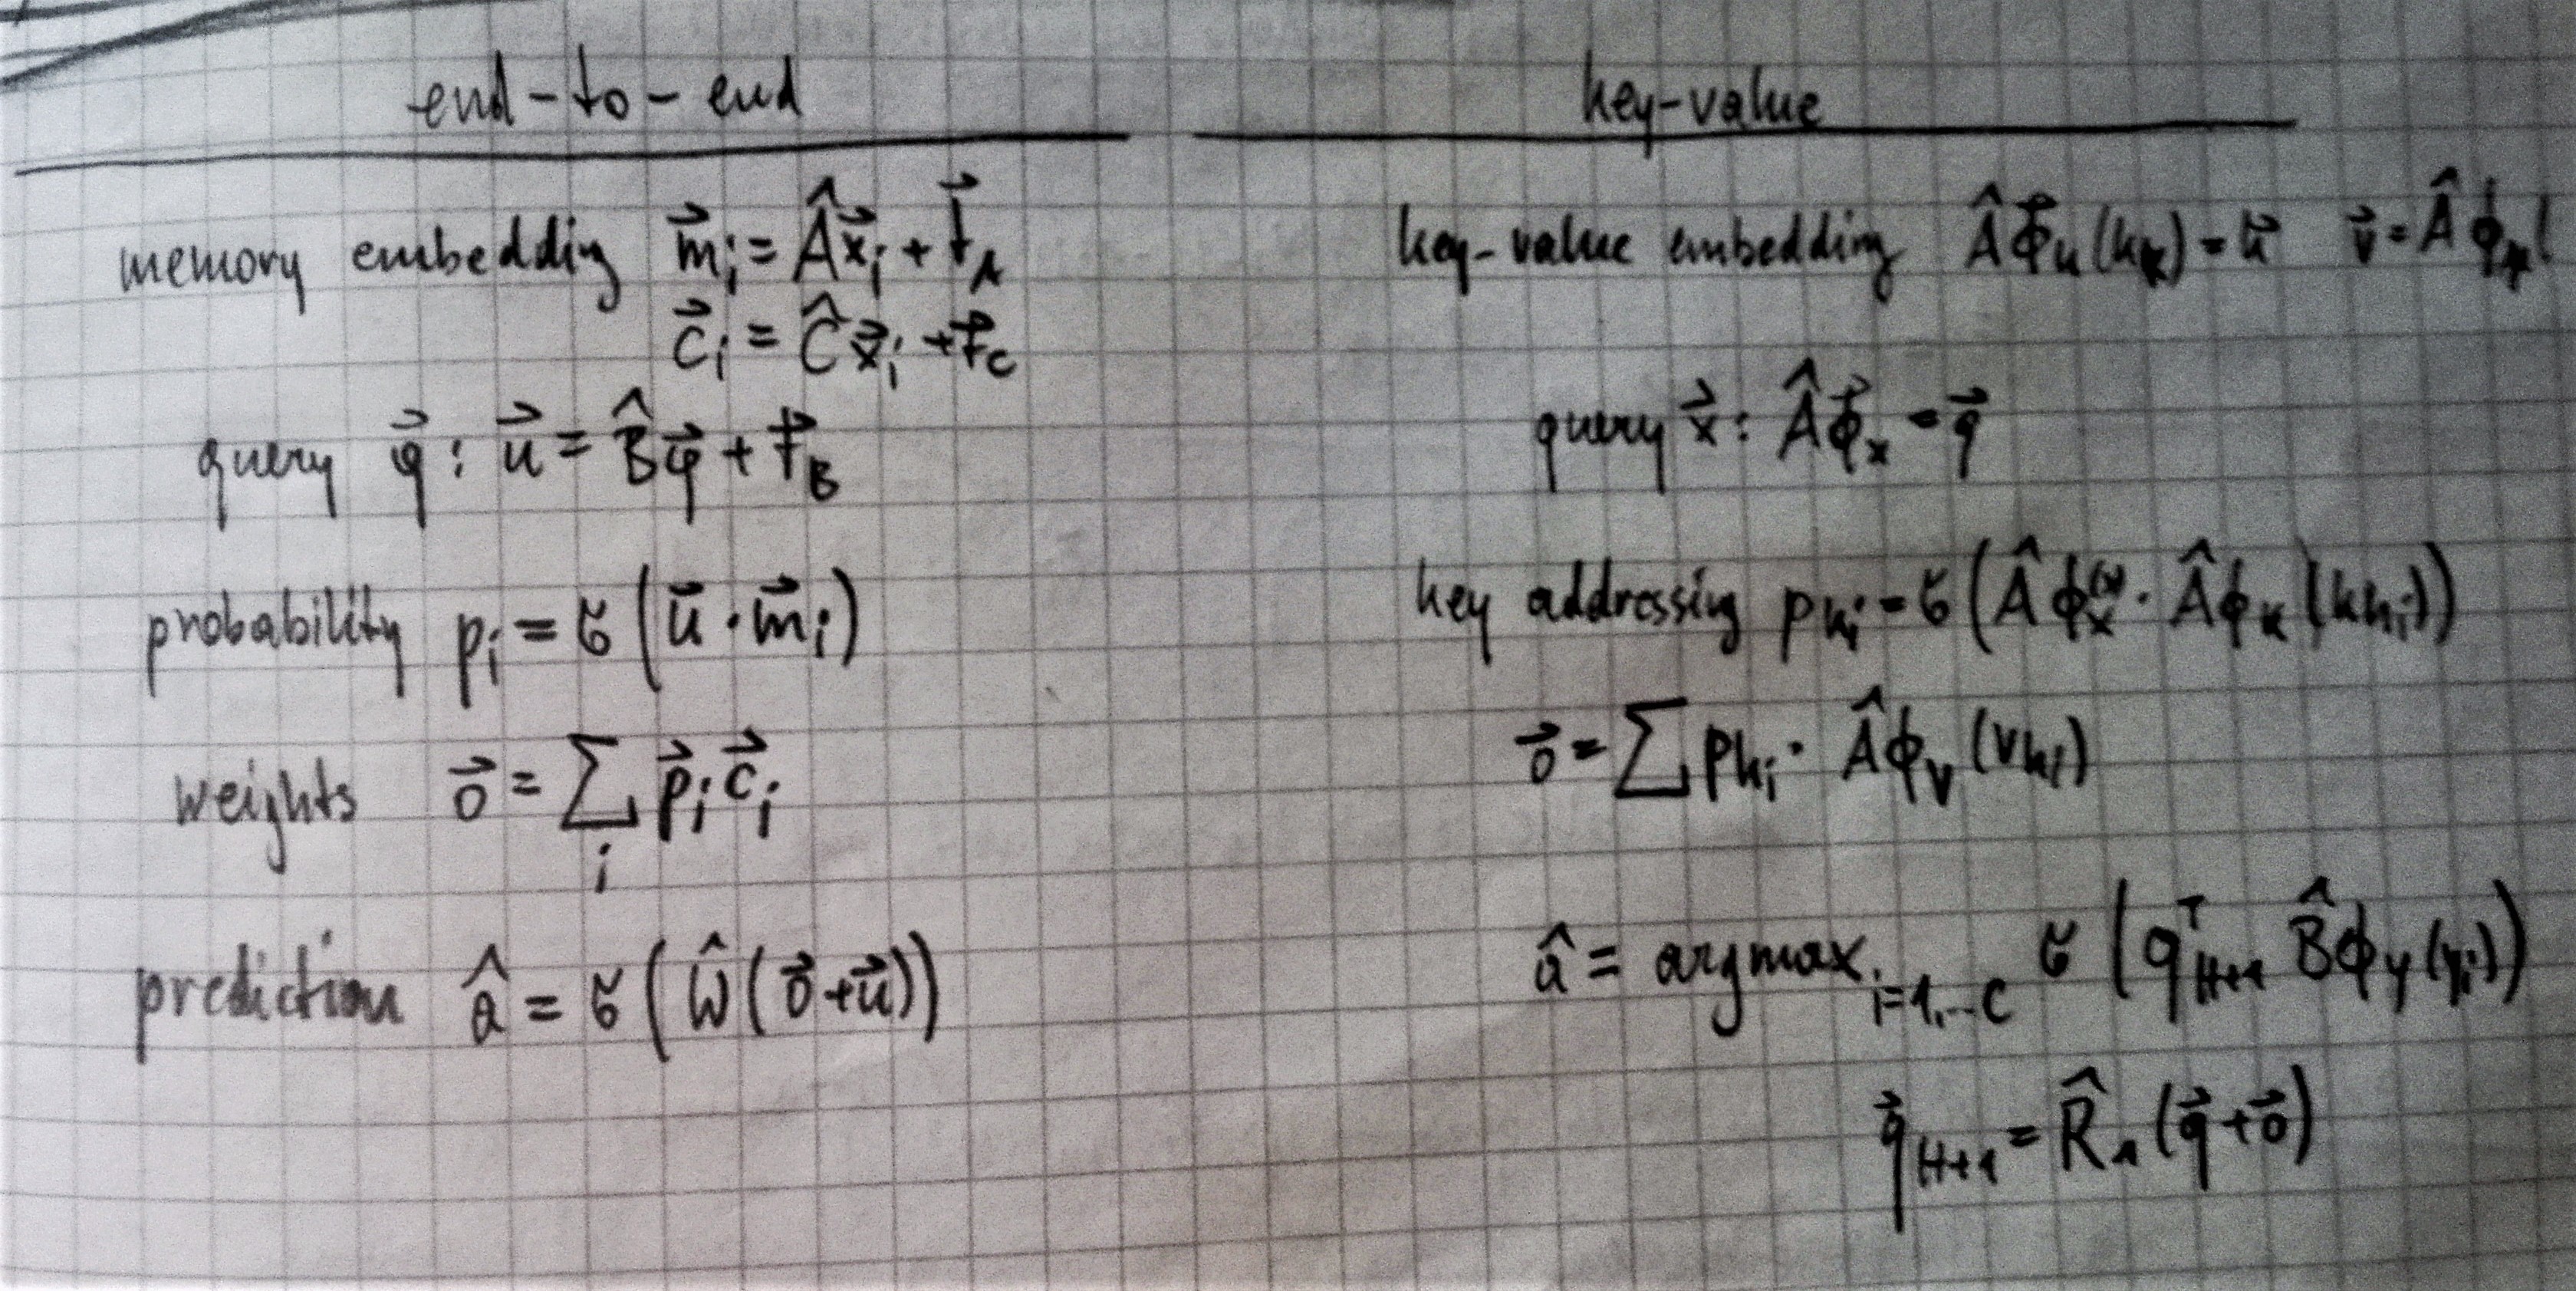 end-to-end
memory embedding m⃗ᵢ = Âx⃗ᵢ + t⃗_A
c⃗ᵢ = Ĉx⃗ᵢ + t⃗_C
query q⃗ : u⃗ = B̂q⃗ + t⃗_B
probability pᵢ = σ(u⃗ · m⃗ᵢ)
weights o⃗ = Σᵢ p⃗ᵢ c⃗ᵢ
prediction â = σ(Ŵ(o⃗+u⃗))
key-value
key-value embedding ÂΦ⃗_k(k_k) = k⃗ v⃗ = Âϕ
query x⃗ : Âϕ⃗_x = q⃗
key addressing p_{hᵢ} = σ(Âϕ_x^{(x)} · Âϕ_K(k_{hᵢ}))
o⃗ = Σ p_{hᵢ} · Âϕ_V(v_{hᵢ})
â = argmax_{i=1,...C} σ(q^T_{H+1} B̂ϕ_Y(yᵢ))
q⃗_{H+1} = R̂₁(q⃗+o⃗)